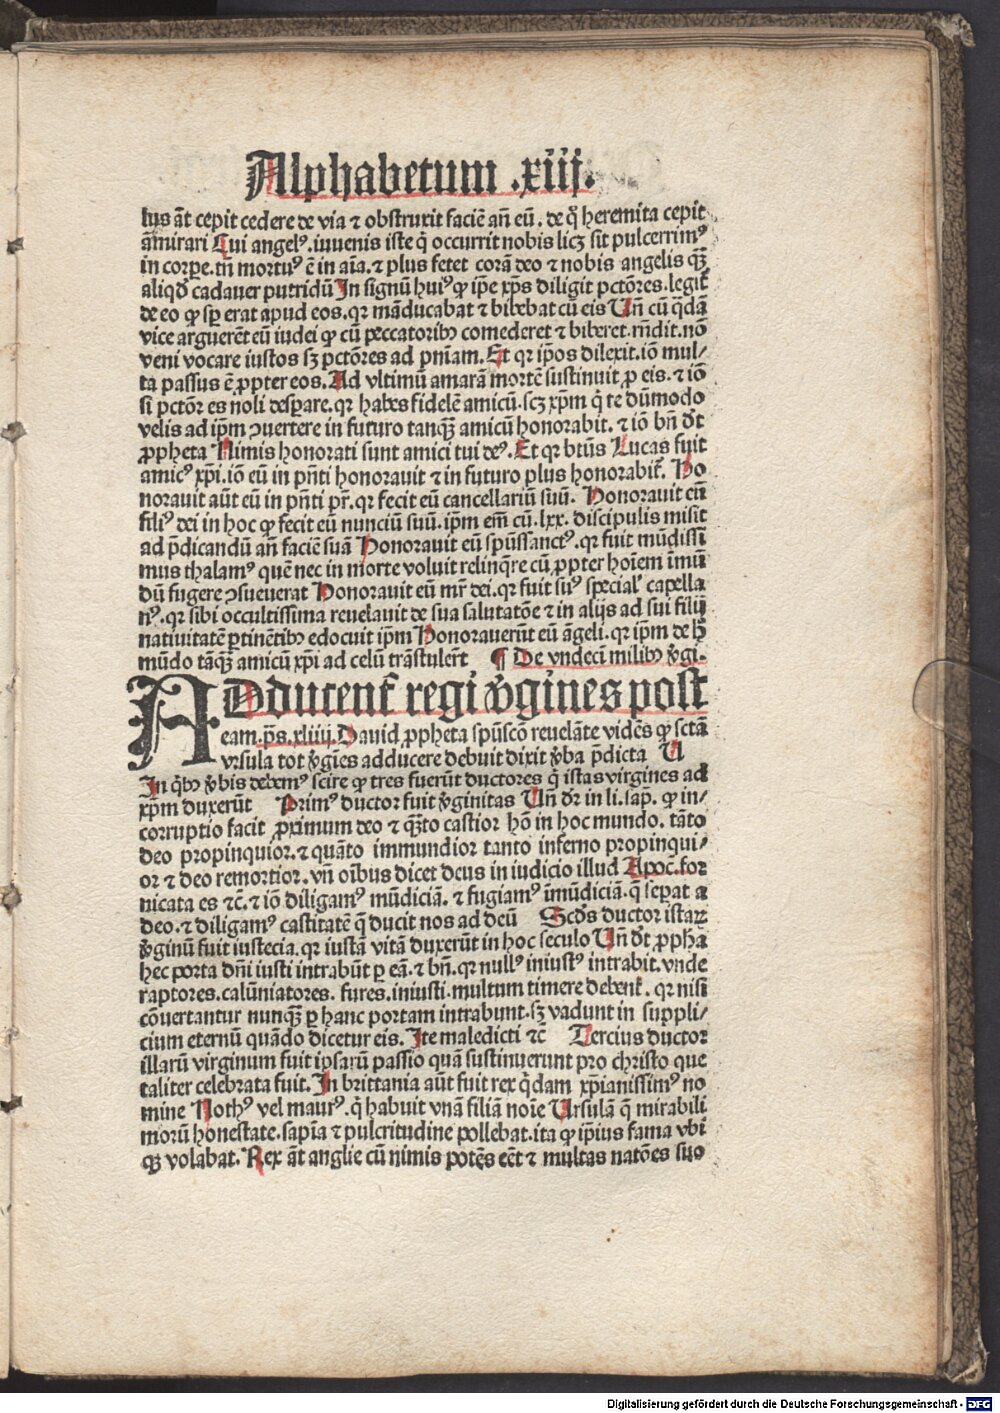 Alphabetum .xiij.
lus āt cepit cedere de via ⁊ obstruxit faciē añ eū . de q̇ heremita cepit
āmirari Cui angelꝰ. iuuenis iste q̇ occurrit nobis licꝫ sit pulcerrimꝰ
in corpe. tñ mortuꝰ ē in aīa. ⁊ plus fetet corā deo ⁊ nobis angelis qꝫ̄
aliqđ cadauer putridū In signū huiꝰ ꝙ ip̄e xp̄s diligit pctōres. legit̄
de eo ꝙ sꝑ erat apud eos. qꝛ māducabat ⁊ bibebat cū eis Vñ cū q̄dā
vice arguerēt eū iudei ꝙ cū peccatoribꝫ comederet ⁊ biberet. rñdit. nō
veni vocare iustos sꝫ pctōres ad pñiam. Et qꝛ ip̄os dilexit. iō mul⸗
ta passus ē ꝓpter eos. Ad vltimū amarā mortē sustinuit ꝓ eis. ⁊ iō
si pctōr es noli desꝑare. qꝛ habes fidelē amicū. scꝫ xp̄m q̇ te dūmodo
velis ad ip̄m ꝯuertere in futuro tanqꝫ̄ amicū honorabit. ⁊ iō bñ dt̄
ꝓpheta Nimis honorati sunt amici tui deꝰ. Et qꝛ btūs Lucas fuit
amicꝰ xp̄i. iō eū in pñti honorauit ⁊ in futuro plus honorabit̄. Ho
norauit aūt eū in pñti pr̄. qꝛ fecit eū cancellariū suū. Honorauit eū
filiꝰ dei in hoc ꝙ fecit eū nunciū suū. ip̄m em̄ cū. lxx. discipulis misit
ad p̄dicandū añ faciē suā Honorauit eū spūssanctꝰ. qꝛ fuit mūdissi
mus thalamꝰ quē nec in morte voluit relinq̄re cū ꝓpter hoīem īmū
dū fugere ꝯsueuerat Honorauit eū mr̄ dei. qꝛ fuit suꝰ special' capella
nꝰ. qꝛ sibi occultissima reuelauit de sua salutatōe ⁊ in alijs ad sui filij
natiuitatē ꝑtinētibꝫ edocuit ip̄m Honorauerūt eū āgeli. qꝛ ip̄m de h̄
mūdo tāqꝫ̄ amicū xp̄i ad celū trāstulerūt ¶ De vndecī milibꝫ v̄gi.
ADducent̄ regi v̄gines post
eam. ps̄. xliiij. Dauid ꝓpheta spūscō reuelāte vidēs ꝙ sctā
vrsula tot v̄gīes adducere debuit dixit v̄ba p̄dicta V
In q̇bꝫ v̄bis debemꝰ scire ꝙ tres fuerūt ductores q̇ istas virgines ad
xp̄m duxerūt Primꝰ ductor fuit v̄ginitas Vñ dr̄ in li. sap̄. ꝙ in⸗
corruptio facit ꝓximum deo ⁊ qꝫ̄to castior hō in hoc mundo. tāto
deo propinquior. ⁊ quāto immundior tanto inferno propinqui⸗
or ⁊ deo remotior. vñ oībus dicet deus in iudicio illud Apoc̄. for
nicata es ⁊c̄. ⁊ iō diligamꝰ mūdiciā. ⁊ fugiamꝰ īmūdiciā. q̄ seꝑat a
deo. ⁊ diligamꝰ castitatē q̄ ducit nos ad deū Scd̄s ductor istaꝝ
v̄ginū fuit iustecia. qꝛ iustā vitā duxerūt in hoc seculo Vñ dt̄ ꝓpha
hec porta dñi iusti intrabūt ꝑ eā. ⁊ bñ. qꝛ nullꝰ iniustꝰ intrabit. vnde
raptores. calūniatores. fures. iniusti. multum timere debent̄. qꝛ nisi
cōuertantur nunqꝫ̄ ꝑ hanc portam intrabunt. sꝫ vadunt in suppli⸗
cium eternū quādo dicetur eis. Ite maledicti ⁊c̄ Tercius ductor
illarū virginum fuit ipsarū passio quā sustinuerunt pro christo que
taliter celebrata fuit. In brittania aūt fuit rex q̇dam xp̄ianissimꝰ no
mine Nothꝰ vel maurꝰ. q̇ habuit vnā filiā noīe Vrsulā q̄ mirabili
morū honestate. sapīa ⁊ pulcritudine pollebat. ita ꝙ ip̄ius fama vbi
qꝫ volabat. Rex āt anglie cū nimis potēs eēt ⁊ multas natōes suo
Digitalisierung gefördert durch die Deutsche Forschungsgemeinschaft - DFG